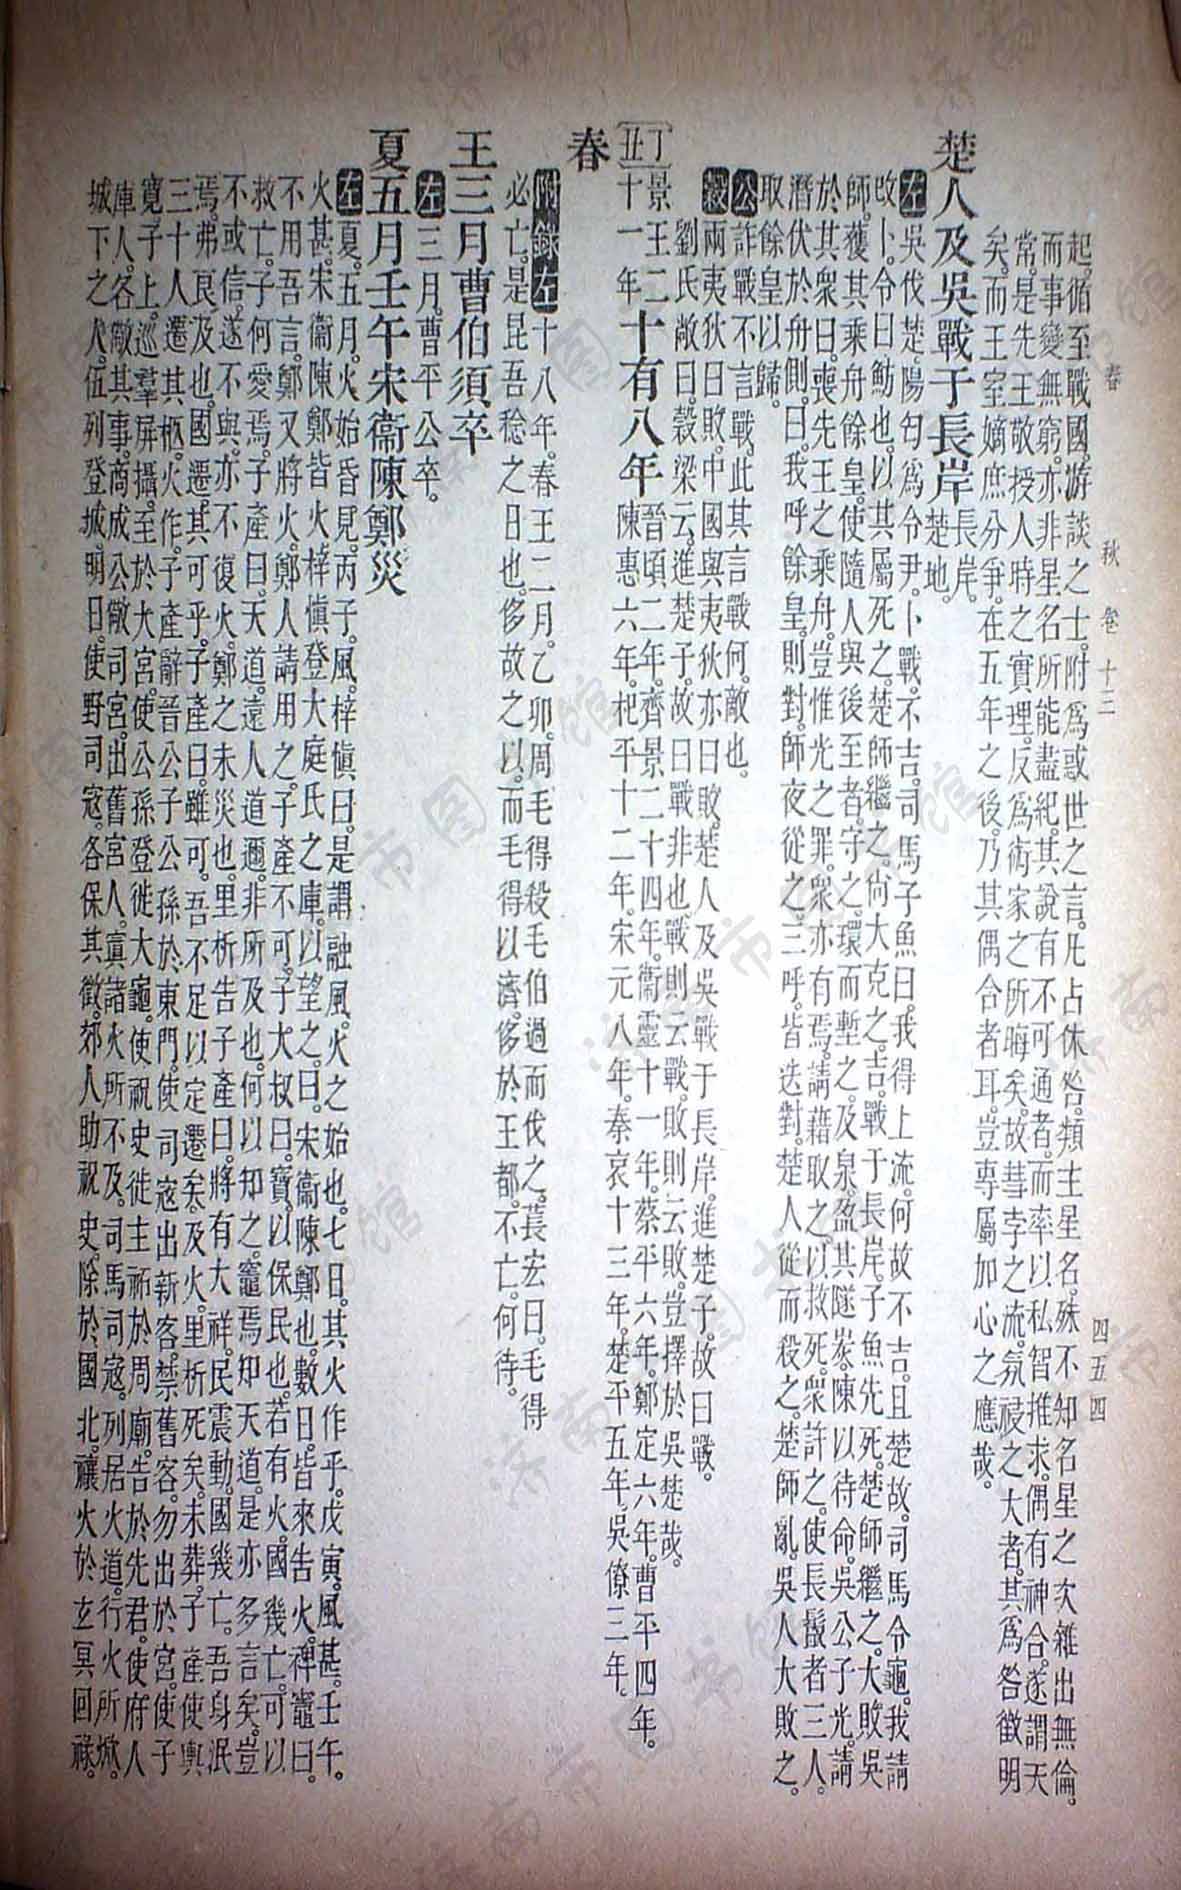 春秋 卷十三 四五四
起。循至戰國。游談之士。附爲或世之言。凡占休咎。類主星名。殊不知名星之次。雜出無倫。
而事變無窮。亦非星名所能盡紀。其說有不可通者。而率以私智推求。偶有神合。遂謂天
常。是先王敬授人時之實理。反爲術家之所晦矣。故彗孛之流。氛祲之大者。其爲咎徵明
矣。而王室嫡庶分爭。在五年之後。乃其偶合者耳。豈專屬加心之應哉。
楚人及吳戰于長岸 長岸。楚地。
左吳伐楚。陽匄爲令尹。卜戰。不吉。司馬子魚曰。我得上流。何故不吉。且楚故。司馬令龜。我請
改卜。令曰。魴也。以其屬死之。楚師繼之。尙大克之。吉。戰于長岸。子魚先死。楚師繼之。大敗吳
師。獲其乘舟餘皇。使隨人與後至者守之。環而塹之。及泉。盈其隧炭。陳以待命。吳公子光。請
於其衆曰。喪先王之乘舟。豈惟光之罪。衆亦有焉。請藉取之以救死。衆許之。使長鬛者三人。
潛伏於舟側。曰。我呼餘皇。則對。師夜從之。三呼。皆迭對。楚人從而殺之。楚師亂。吳人大敗之。
取餘皇以歸。
公詐戰不言戰。此其言戰何。敵也。
穀兩夷狄曰敗。中國與夷狄亦曰敗。楚人及吳戰于長岸。進楚子。故曰戰。
劉氏敞曰。穀梁云。進楚子。故曰戰。非也。戰則云戰。敗則云敗。豈擇於吳楚哉。
丁丑 景王二十一年 十有八年 晉頃二年。齊景二十四年。衞靈十一年。蔡平六年。鄭定六年。曹平四年。陳惠六年。杞平十二年。宋元八年。秦哀十三年。楚平五年。吳僚三年。
春
附錄左十八年。春王二月。乙卯。周毛得殺毛伯過而伐之。萇宏曰。毛得
必亡。是昆吾稔之日也。侈故之以。而毛得以濟。侈於王都。不亡。何待。
王三月曹伯須卒
左三月。曹平公卒。
夏五月壬午宋衞陳鄭災
左夏。五月。火始昏見。丙子。風。梓愼曰。是謂融風。火之始也。七日。其火作乎。戊寅。風甚。壬午。
火甚。宋衞陳鄭皆火。梓愼登大庭氏之庫。以望之。曰。宋衞陳鄭也。數日。皆來告火。禆竈曰。
不用吾言。鄭又將火。鄭人請用之。子產不可。子大叔曰。寶。以保民也。若有火。國幾亡。可以
救亡。子何愛焉。子產曰。天道遠。人道邇。非所及也。何以知之。竈焉知天道。是亦多言矣。豈
不或信。遂不與。亦不復火。鄭之未災也。里析告子產曰。將有大祥。民震動。國幾亡。吾身泯
焉。弗良及也。國遷。其可乎。子產曰。雖可。吾不足以定遷矣。及火。里析死矣。未葬。子產使輿
三十人遷其柩。火作。子產辭晉公子公孫於東門。使司寇出新客。禁舊客。勿出於宮。使子
寬。子上。巡羣屏攝。至於大宮。使公孫登徙大龜。使祝史徙主祏於周廟。告於先君。使府人
庫人。各儆其事。商成公儆司宮。出舊宮人。寘諸火所不及。司馬司寇。列居火道。行火所焮。
城下之人。伍列登城。明日。使野司寇。各保其徵。郊人助祝史。除於國北。禳火於玄冥回祿。